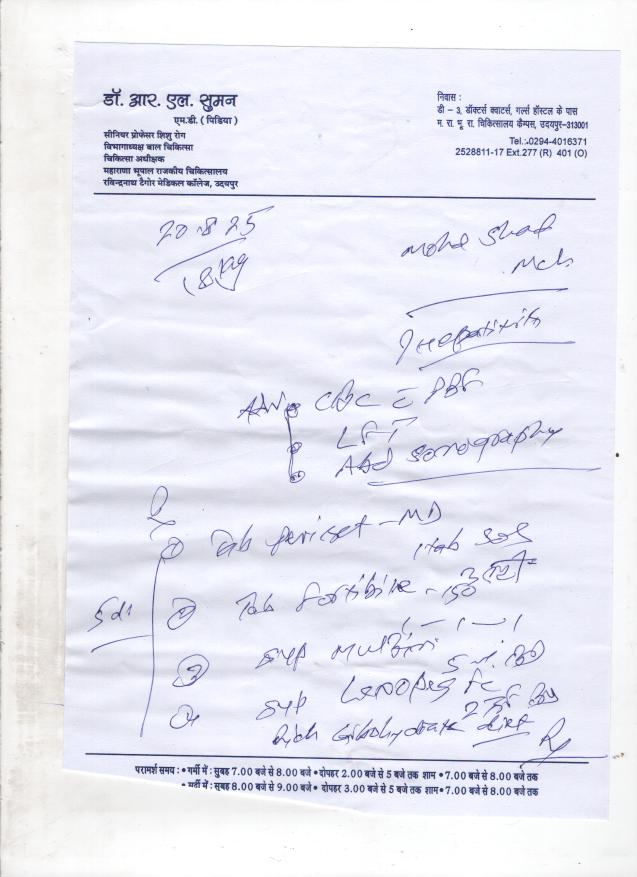 डॉ. आर. एल. सुमन
एम.डी. (पिडिया)
सीनियर प्रोफेसर शिशु रोग
विभागाध्यक्ष बाल चिकित्सा
चिकित्सा अधीक्षक
महाराणा भूपाल राजकीय चिकित्सालय
रविन्द्रनाथ टैगोर मेडिकल कॉलेज, उदयपुर
निवास :
डी – 3, डॉक्टर्स क्वाटर्स, गर्ल्स हॉस्टल के पास
म. रा. भू. रा. चिकित्सालय कैम्पस, उदयपुर–313001
Tel.:0294-4016371
2528811-17 Ext.277 (R) 401 (O)
20.8.25
18 kg
Mohd
Mch
? Hepatitis
CBC PBF
LFT
Abd sonography
Tab Periset - MD
1 tab SOS
Tab - 150
1 - 1 - 1
5d
Syp
5 ml BD
Syp
Rich Carbohydrate diet
परामर्श समय : • गर्मी में : सुबह 7.00 बजे से 8.00 बजे • दोपहर 2.00 से 5 बजे तक शाम • 7.00 बजे से 8.00 बजे तक
• सर्दी में : सुबह 8.00 बजे से 9.00 बजे • दोपहर 3.00 से 5 बजे तक शाम • 7.00 बजे से 8.00 बजे तक